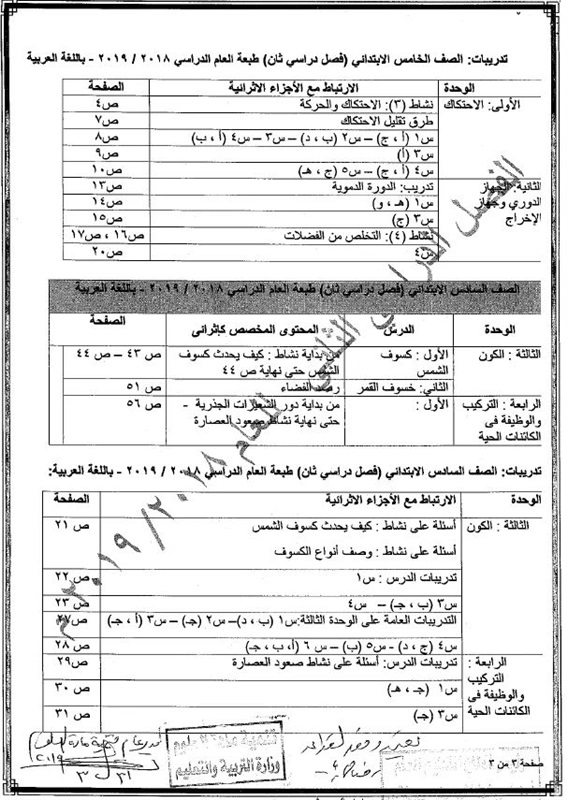 تدريبات: الصف الخامس الابتدائي (فصل دراسي ثان) طبعة العام الدراسي ٢٠١٨ / ٢٠١٩ - باللغة العربية
الوحدة الارتباط مع الأجزاء الاثرائية الصفحة
الأولى: الاحتكاك نشاط (٣): الاحتكاك والحركة ص٤
طرق تقليل الاحتكاك ص٧
س١ (أ ، ج) – س٢ (ب ، د) – س٣ – س٤ (أ ، ب) ص٨
س٣ (أ) ص٩
س٤ (أ ، ج) – س٥ (ج ، هـ) ص١٠
الثانية: الجهاز الدوري وجهاز الإخراج تدريب: الدورة الدموية ص١٣
س١ (هـ ، و) ص١٤
س٣ (ج) ص١٥
نشاط (٤): التخلص من الفضلات ص١٦ ، ص١٧
س٤ ص٢٠
الصف السادس الابتدائي (فصل دراسي ثان) طبعة العام الدراسي ٢٠١٨ / ٢٠١٩ - باللغة العربية
الوحدة الدرش المحتوى المخصص كإثرائى الصفحة
الثالثة : الكون الأول : كسوف الشمس من بداية نشاط : كيف يحدث كسوف الشمس حتى نهاية ص ٤٤ ص ٤٣ – ص ٤٤
الثاني: خسوف القمر رصد الفضاء ص ٥١
الرابعة : التركيب والوظيفة فى الكائنات الحية الأول : من بداية دور الشعيرات الجذرية - حتى نهاية نشاط صعود العصارة ص ٥٦
تدريبات: الصف السادس الابتدائي (فصل دراسي ثان) طبعة العام الدراسي ٢٠١٨ / ٢٠١٩ - باللغة العربية:
الوحدة الارتباط مع الأجزاء الاثرائية الصفحة
الثالثة : الكون أسئلة على نشاط : كيف يحدث كسوف الشمس ص ٢١
أسئلة على نشاط : وصف أنواع الكسوف
تدريبات الدرس : س١ ص ٢٢
س٣ (ب ، جـ) – س٤ ص ٢٣
التدريبات العامة على الوحدة الثالثة: س١ (ب ، د)– س٢ (جـ) – س٣ (أ ، جـ) ص٢٧
س٤ (ج ، د)- س٥ (ب) – س ٦ (أ، ب ، جـ) ص ٢٨
الرابعة : التركيب والوظيفة فى الكائنات الحية تدريبات الدرس: أسئلة على نشاط صعود العصارة ص٢٩
س١ (جـ ، هـ) ص ٣٠
س٣ (جـ) ص ٣١
الفصل الدراسي الثاني للعام ٢٠١٨ / ٢٠١٩ م
تنمية مادة العلوم
وزارة التربية والتعليم
صفحة ٣ من ٣